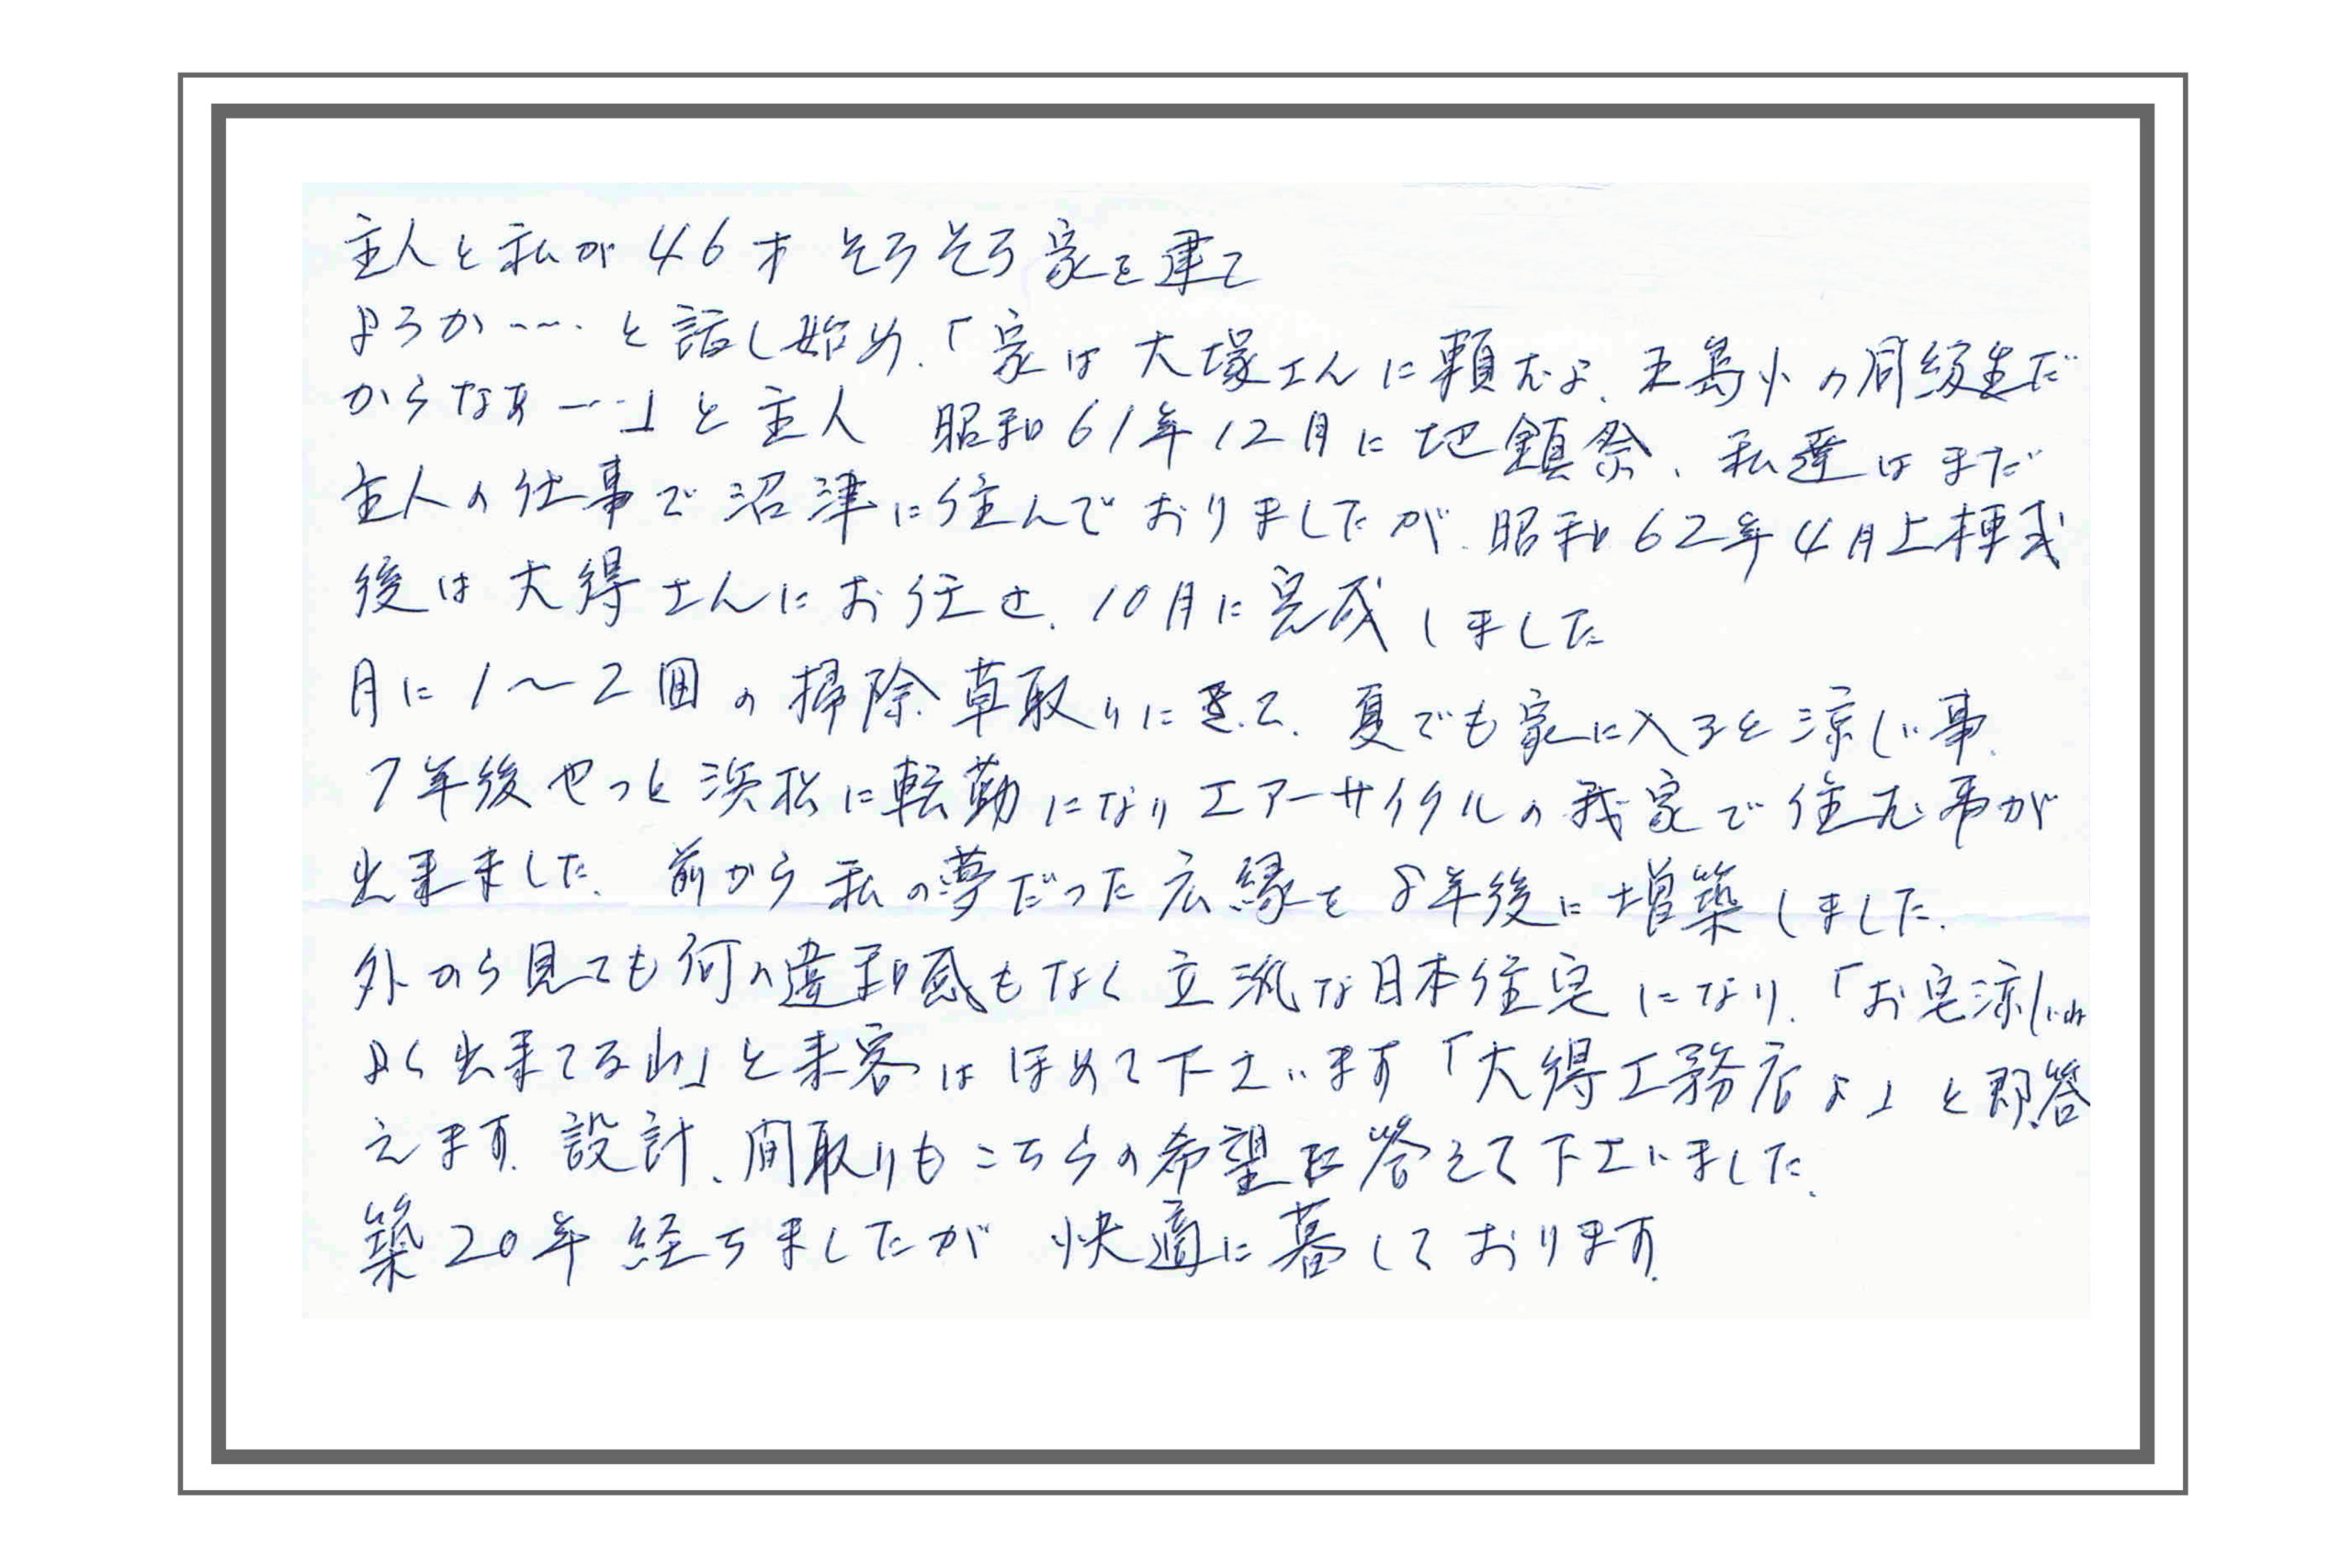 主人と私が46才 そろそろ家を建て
ようか……と話し始め、「家は大塚さんに頼むよ、五島小の同級生だ
からなぁ……」と主人 昭和61年12月に地鎮祭、私達はまだ
主人の仕事で沼津に住んでおりましたが、昭和62年4月上棟式
後は大得さんにお任せ、10月に完成しました
月に1〜2回の掃除、草取りに来て、夏でも家に入ると涼しい事、
7年後やっと浜松に転勤になりエアーサイクルの我家で住む事が
出来ました、前から私の夢だった広縁を8年後に増築しました、
外から見ても何の違和感もなく立派な日本住宅になり、「お宅涼しいね
よく出来てるね」と来客はほめて下さいます「大得工務店よ」と即答
えます、設計、間取りもこちらの希望に答えて下さいました、
築20年経ちましたが 快適に暮しております、